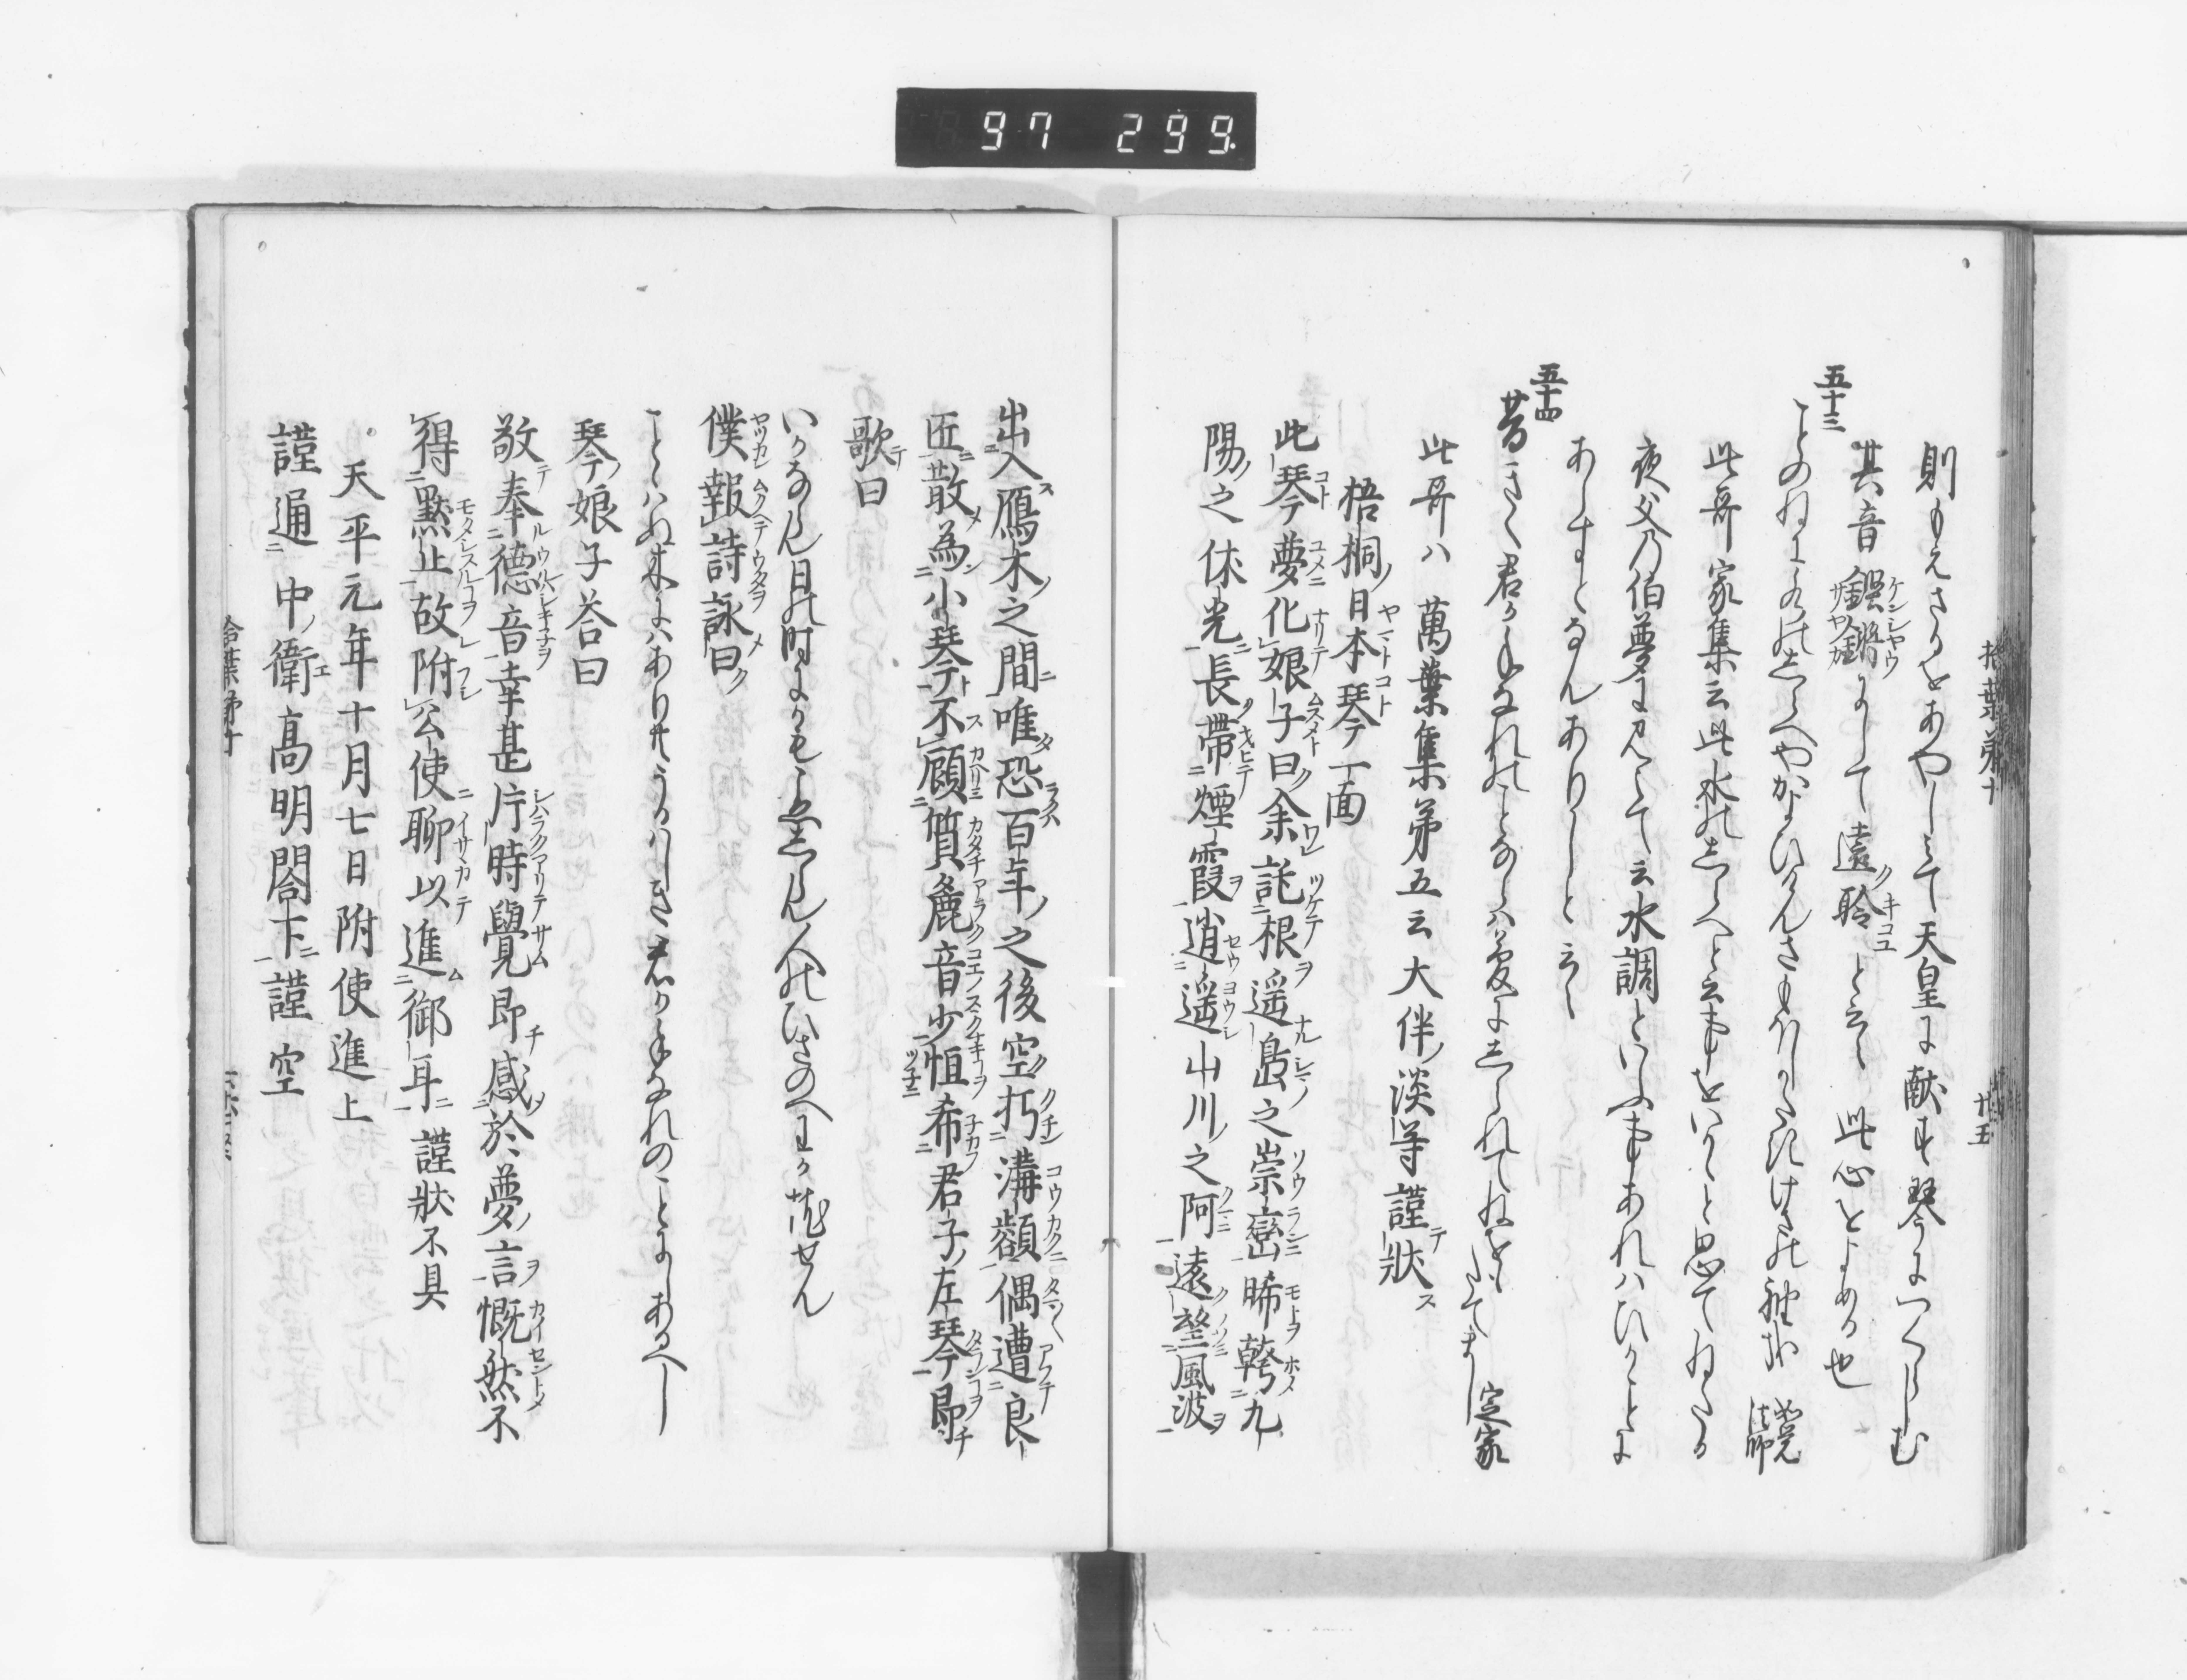 97 299
拾葉第十
廿五
則もえさるをあやしみて天皇に献す琴につくらしむ
其音鏗鏘にして遠聆と云々此心をよめる也
ケンシヤウ
サヤカ
ノキコユ
五十三
ことのねに
寂蓮法師
此哥家集云此水のしらへと云事をいかと思てねたる
夜父の伯夢に見えて云水調といふ事あれはひかことに
あらすとなんありしと云々
五十四
昔きく君か手なれのことならは夢にしられてねをもたてまし 定家
此哥ハ萬葉集第五云大伴淡等謹狀
梧桐日本琴一面
ヤマトコト
此琴夢化娘子曰余託根遥島之崇巒晞幹九
陽之休光長帶煙霞逍遥山川之阿遠望風波
出入鴈木之間唯恐百年之後空朽溝壑偶遭良
匠散為小琴不顧質麁音少恒希君子左琴即
歌曰
いかならん日の時にかもこゑしらん人のひさのへわか枕せん
僕報詩詠曰
ことゝはぬ木にはありともうるはしき君か手なれのことにしあるへし
琴娘子荅曰
敬奉德音幸甚片時覺即感於夢言慨然不
得黙止故附公使聊以進御耳謹狀不具
天平元年十月七日附使進上
謹通中衛高明閤下謹空
拾葉第十